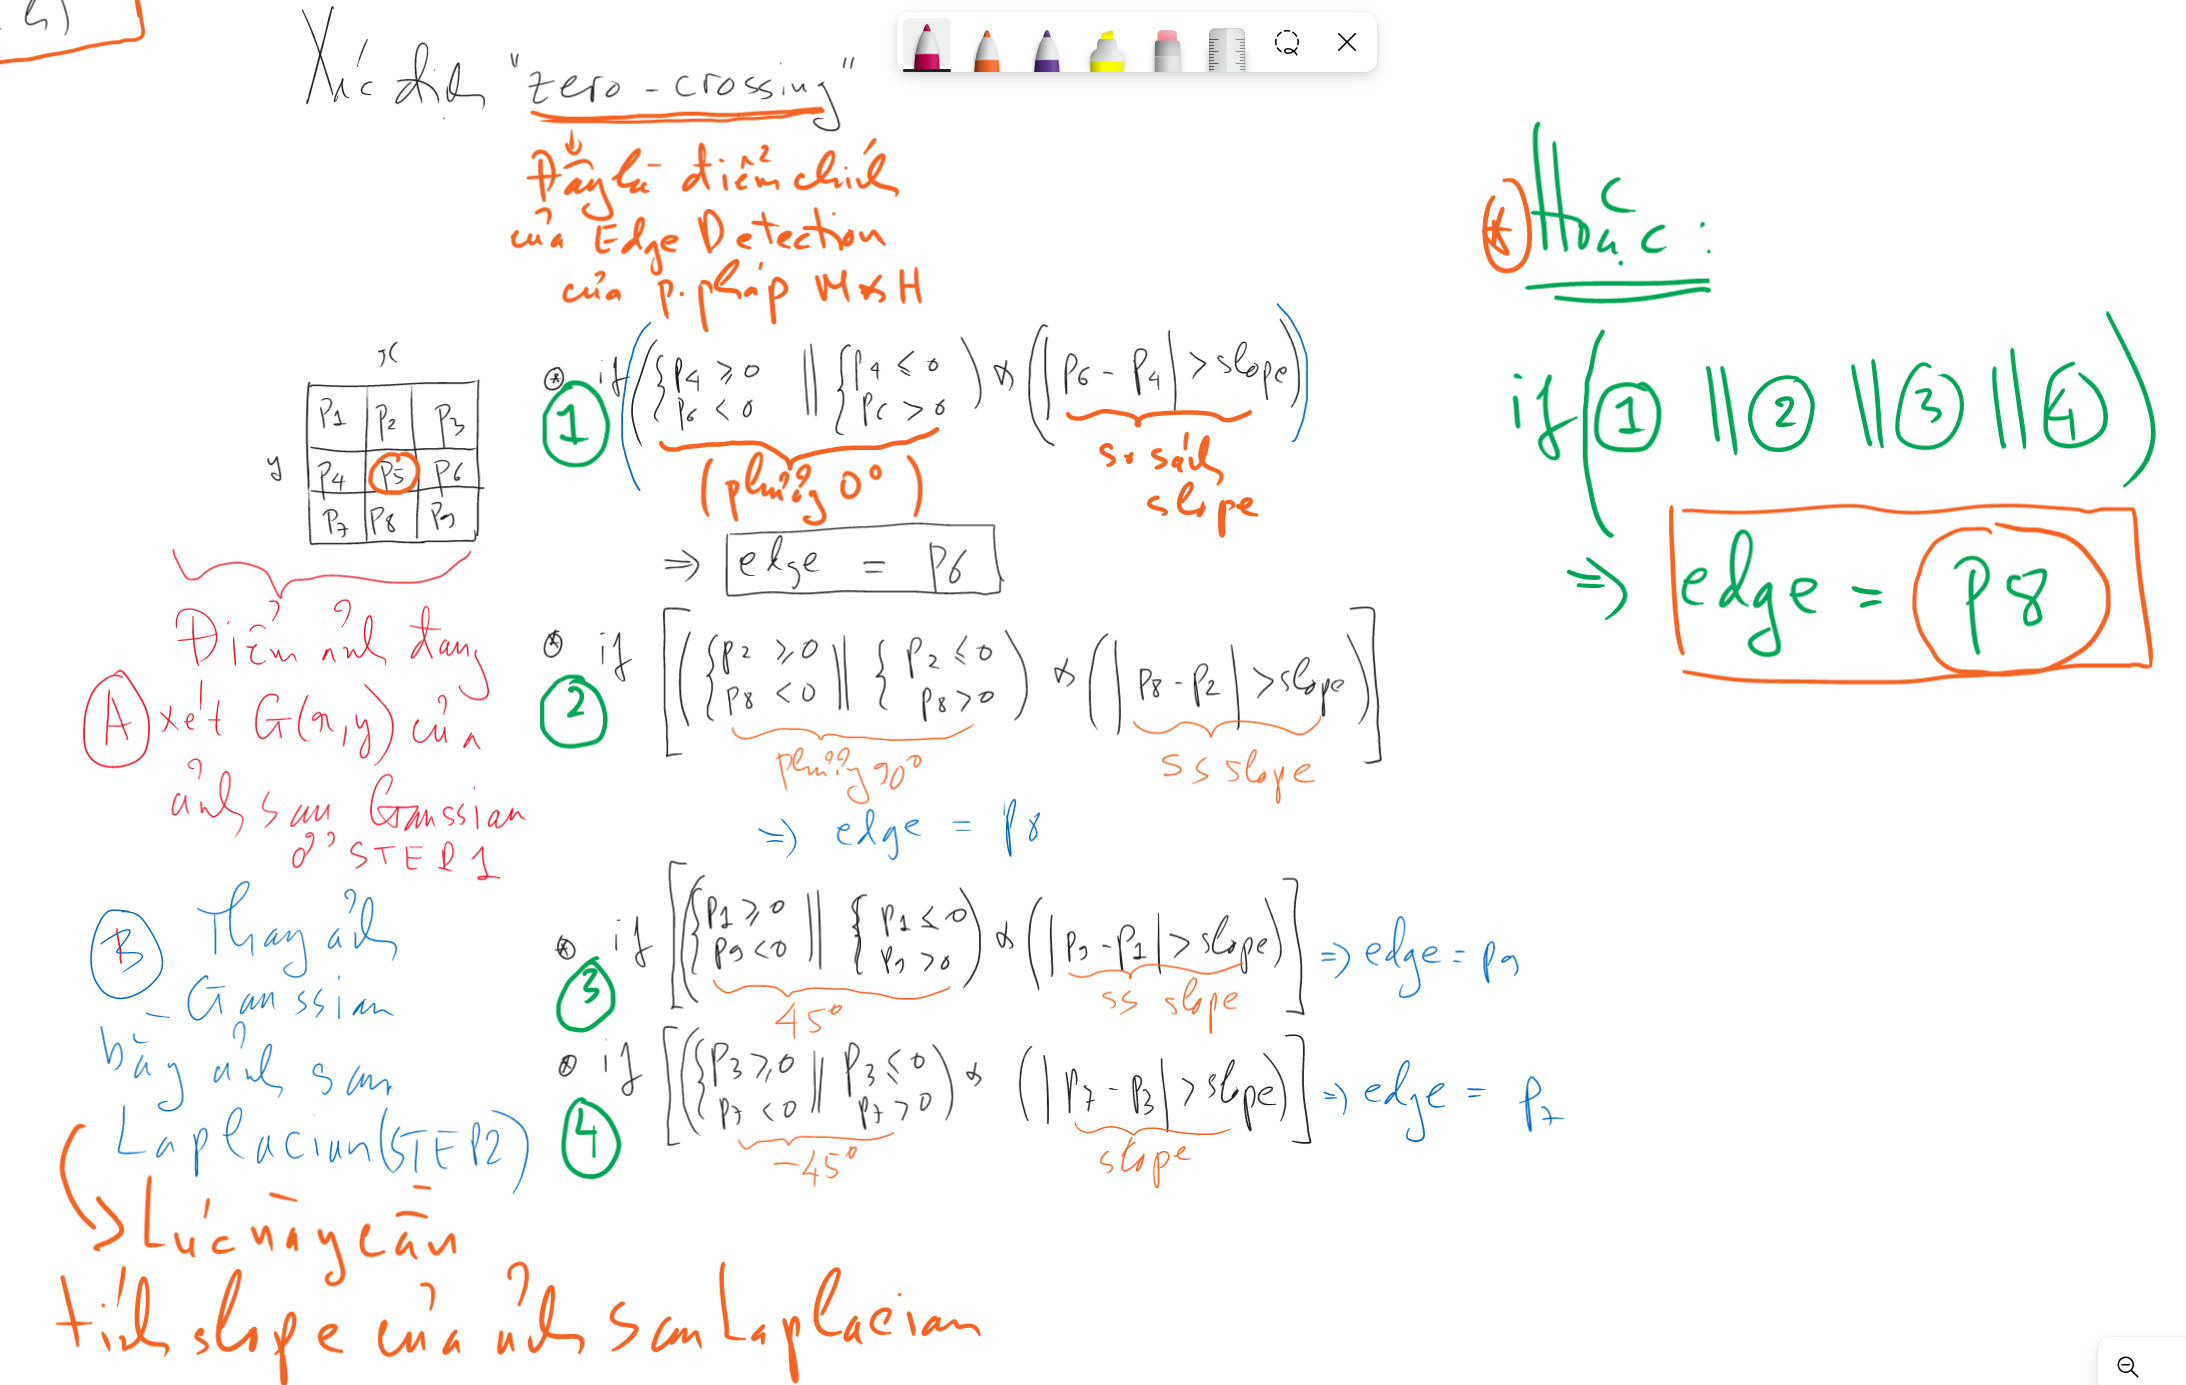 Xác định "zero - crossing"
Đây là điểm chính
của Edge Detection
của p. pháp M&H
x
y
P1 P2 P3
P4 P5 P6
P7 P8 P9
Điểm ảnh đang
A xét G(x,y) của
ảnh sau Gaussian
ở STEP1
B Thay ảnh
Gaussian
bằng ảnh sau
Laplacian (STEP2)
Lúc này cần
tính slope của ảnh sau Laplacian
* 1 if (({P4 ≥ 0 || {P4 ≤ 0) & (|P6 - P4| > slope))
P6 < 0 P6 > 0
(phương 0°) so sánh
slope
⇒ edge = P6
* 2 if [({P2 ≥ 0 || {P2 ≤ 0) & (|P8 - P2| > slope)]
P8 < 0 P8 > 0
phương 90° ss slope
⇒ edge = P8
* 3 if [({P1 ≥ 0 || {P1 ≤ 0) & (|P9 - P1| > slope)] ⇒ edge = P9
P9 < 0 P9 > 0
45° ss slope
* 4 if [({P3 ≥ 0 || P3 ≤ 0) & (|P7 - P3| > slope)] ⇒ edge = P7
P7 < 0 P7 > 0
-45° slope
* Hoặc :
if (1 || 2 || 3 || 4)
⇒ edge = P8